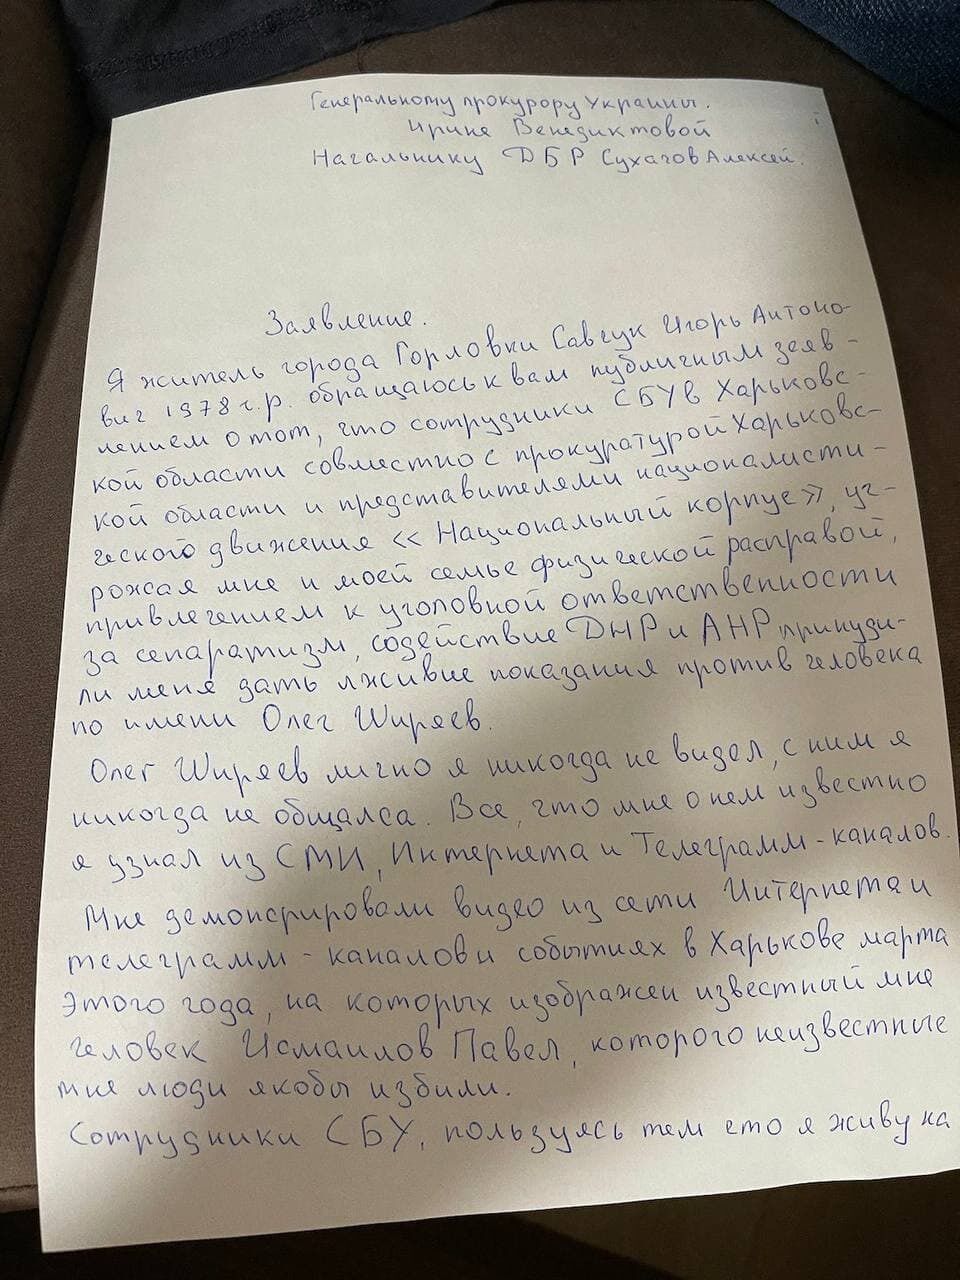 Генеральному прокурору Украины.
Ирине Венедиктовой
Начальнику ДБР Сухачов Алексей.
Заявление.
Я житель города Горловки Савчук Игорь Антоно-
вич 1978 г.р. обращаюсь к вам публичным заяв-
лением о тот, что сотрудники СБУ в Харьковс-
кой области совместно с прокуратурой Харьковс-
кой области и представителями националисти-
ческого движения «Национальный корпус», уг-
рожая мне и моей семье физической расправой,
привлечением к уголовной ответственности
за сепаратизм, содействие ДНР и ЛНР принуди-
ли меня дать лживые показания против человека
по имени Олег Ширяев.
Олег Ширяев лично я никогда не видел, с ним я
никогда не общалса. Все, что мне о нем известно
я узнал из СМИ, Интернета и Телеграмм-каналов.
Мне демонсрировали видео из сети Интернета и
телеграмм-каналов и событиях в Харькове марта
этого года, на которых изображен известный мне
человек Исмаилов Павел, которого неизвестные
мне люди якобы избили.
Сотрудники СБУ, пользуясь тем сто я живу на